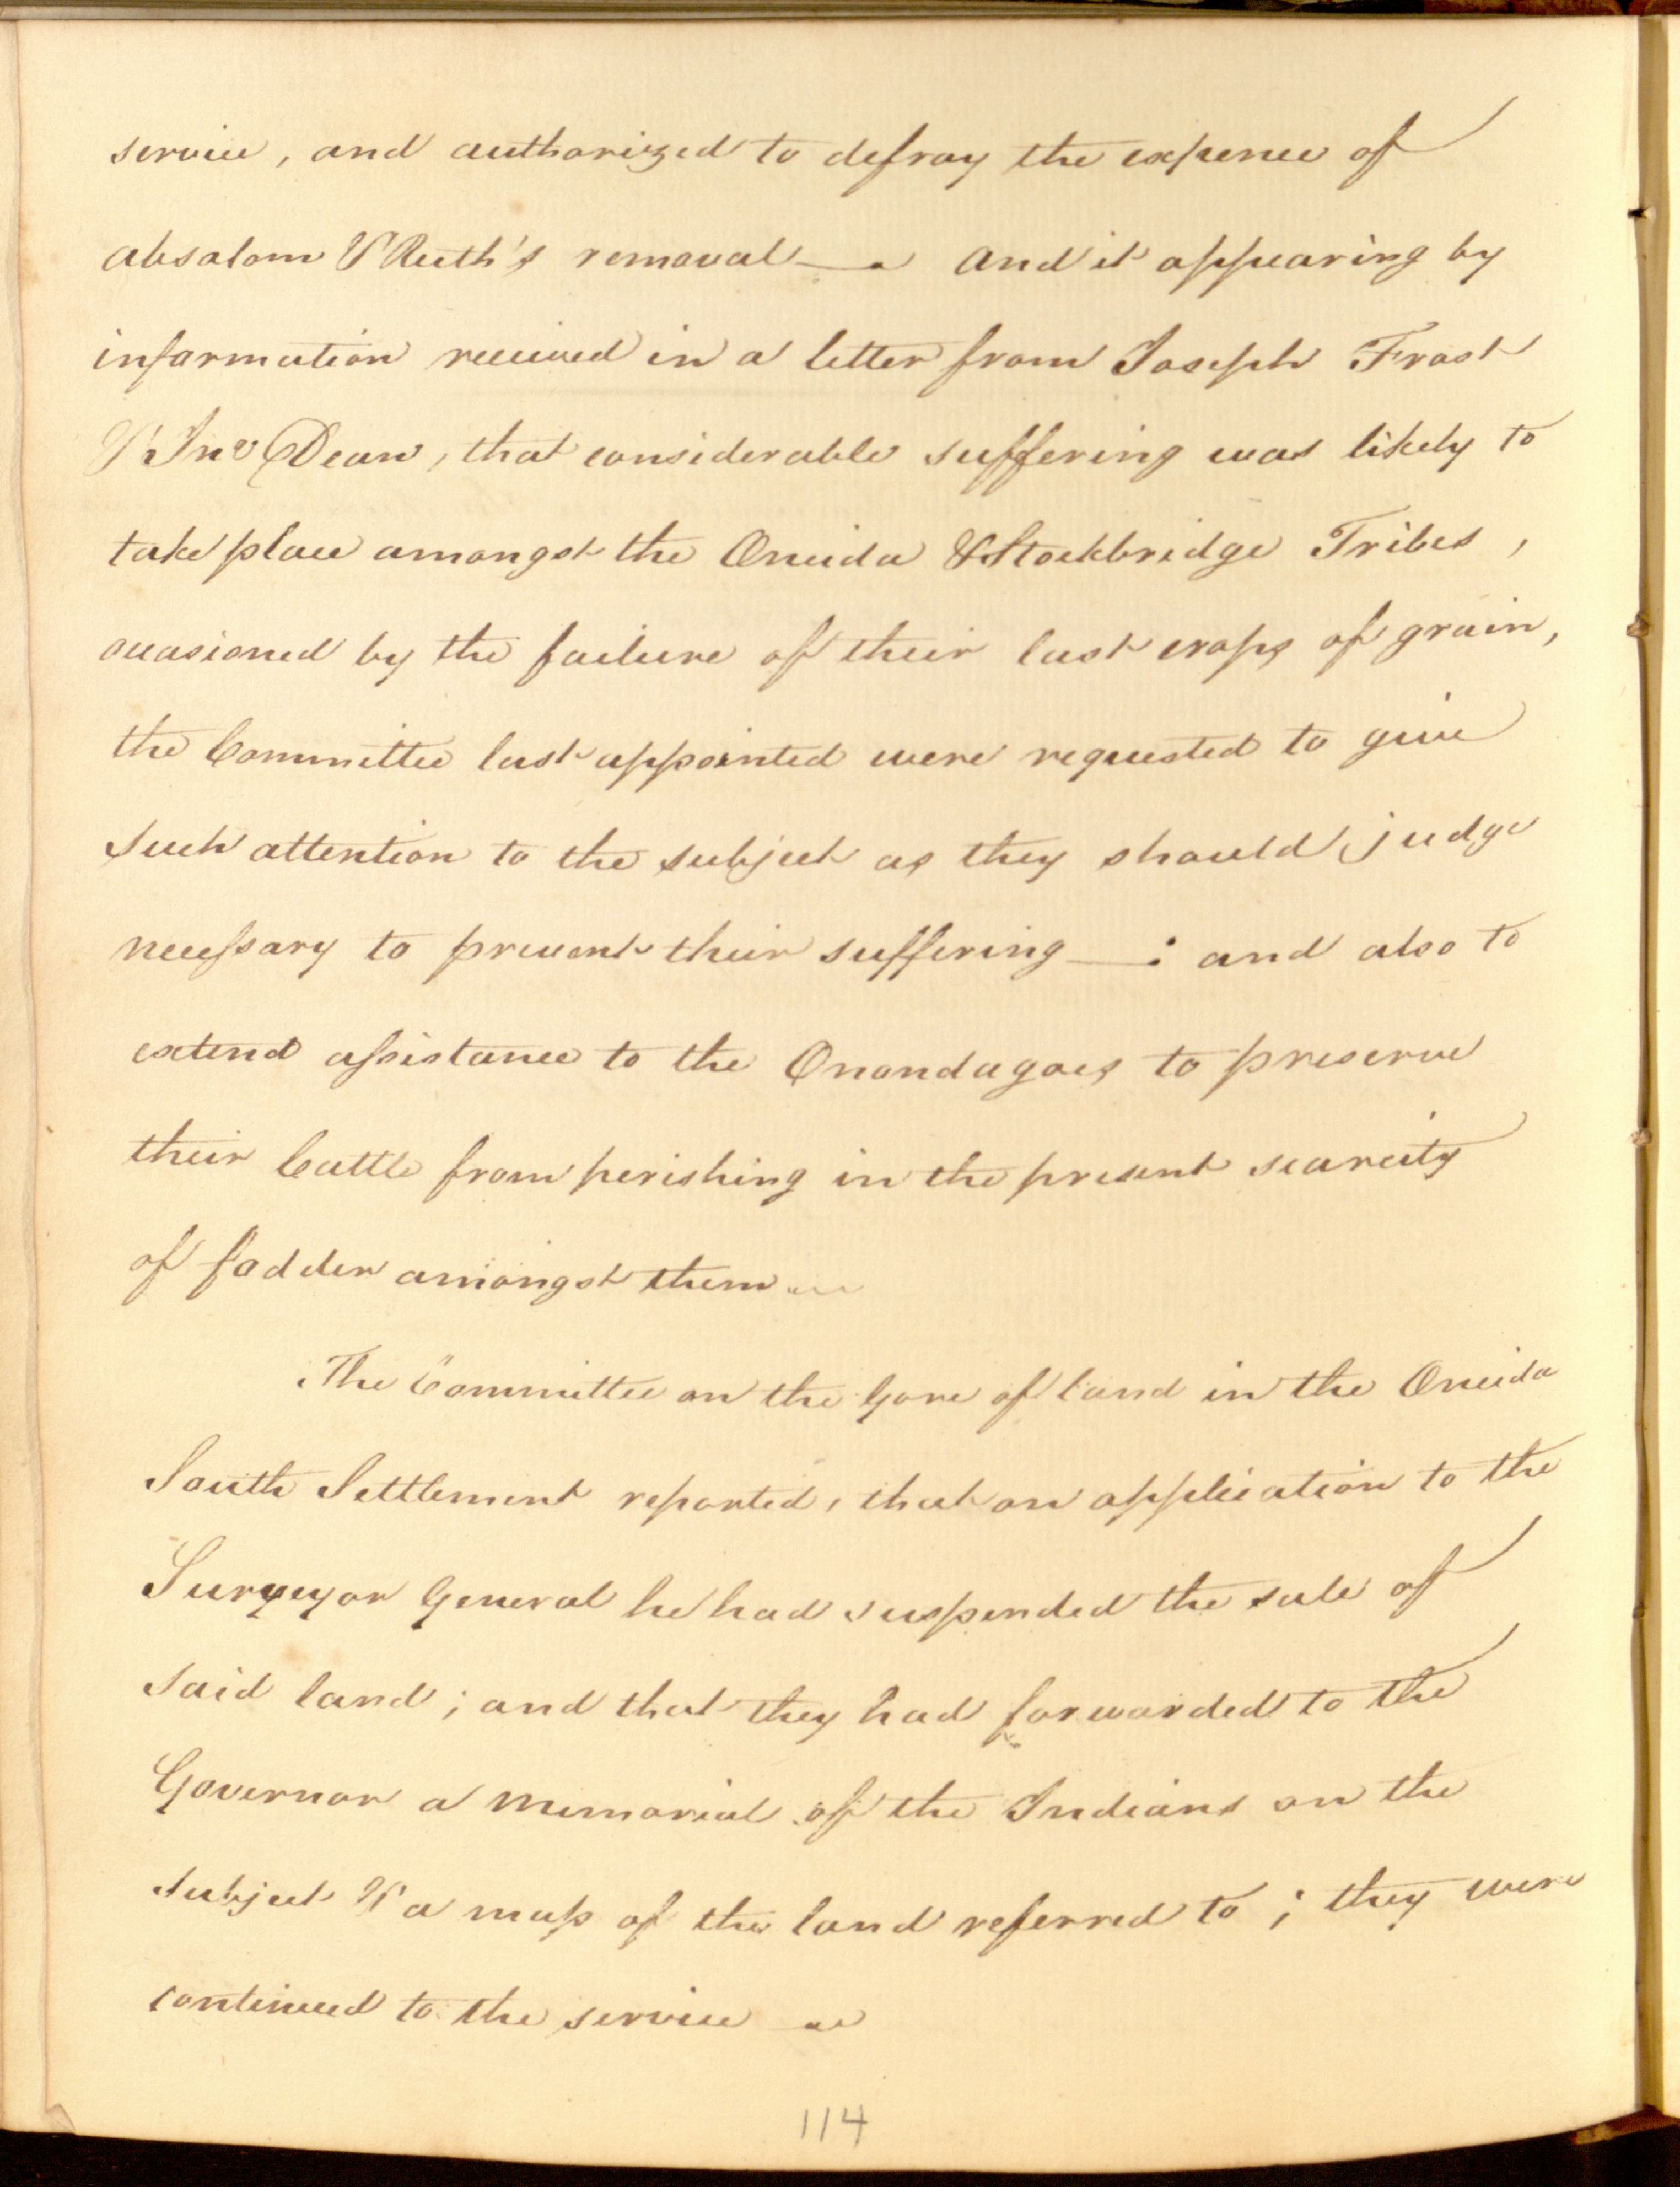 service, and authorized to defray the expence of
absalom & Ruth's removal — and it appearing by
information received in a letter from Joseph Frost
& Jno Dean, that considerable suffering was likely to
take place amongst the Oneida & Stockbridge Tribes,
occasioned by the failure of their last crops of grain,
the Committee last appointed were requested to give
such attention to the subject as they should judge
necessary to prevent their suffering —: and also to
extend assistance to the Onondagoes to preserve
their Cattle from perishing in the present scarcity
of fodder amongst them
The Committee on the Gore of land in the Oneida
South Settlement reported, that on application to the
Surveyor General he had suspended the sale of
said land; and that they had forwarded to the
Governor a memorial of the Indians on the
subject & a map of the land referred to; they were
continued to the service
114